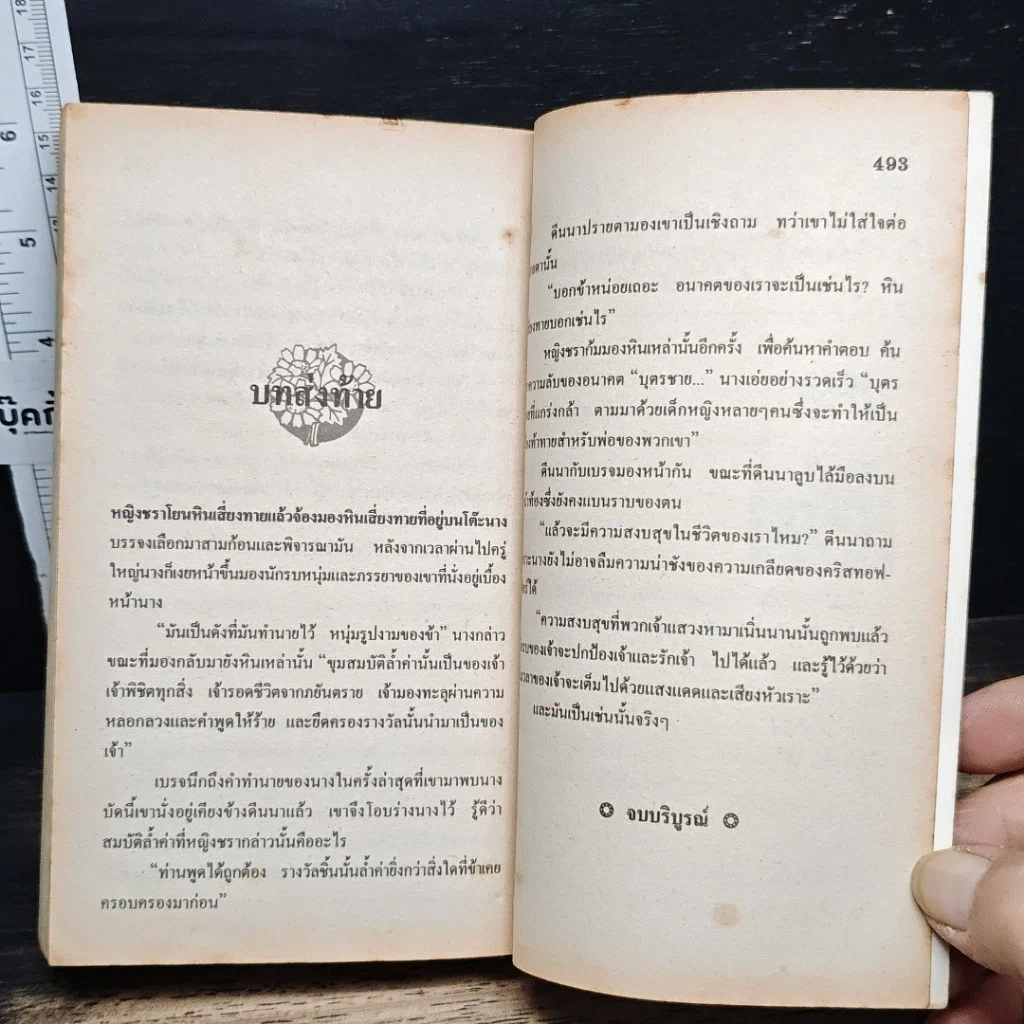 18
17
16
15
14
6
5
4
บุ๊ค
บทส่งท้าย
หญิงชราโยนหินเสี่ยงทายแล้วจ้องมองหินเสี่ยงทายที่อยู่บนโต๊ะนาง
บรรจงเลือกมาสามก้อนและพิจารณามัน หลังจากเวลาผ่านไปครู่
ใหญ่นางก็เงยหน้าขึ้นมองนักรบหนุ่มและภรรยาของเขาที่นั่งอยู่เบื้อง
หน้านาง
“มันเป็นดังที่มันทำนายไว้ หนุ่มรูปงามของข้า” นางกล่าว
ขณะที่มองกลับมายังหินเหล่านั้น “ขุมสมบัติล้ำค่านั้นเป็นของเจ้า
เจ้าพิชิตทุกสิ่ง เจ้ารอดชีวิตจากภยันตราย เจ้ามองทะลุผ่านความ
หลอกลวงและคำพูดให้ร้าย และยึดครองรางวัลนั้นนำมาเป็นของ
เจ้า”
เบรจนึกถึงคำทำนายของนางในครั้งล่าสุดที่เขามาพบนาง
บัดนี้เขานั่งอยู่เคียงข้างดีนนาแล้ว เขาจึงโอบร่างนางไว้ รู้ดีว่า
สมบัติล้ำค่าที่หญิงชรากล่าวนั้นคืออะไร
“ท่านพูดได้ถูกต้อง รางวัลชิ้นนั้นล้ำค่ายิ่งกว่าสิ่งใดที่ข้าเคย
ครอบครองมาก่อน”
493
ดีนนาปรายตามองเขาเป็นเชิงถาม ทว่าเขาไม่ใส่ใจต่อ
นั้น
“บอกข้าหน่อยเถอะ อนาคตของเราจะเป็นเช่นไร? หิน
ทายบอกเช่นไร”
หญิงชราก้มมองหินเหล่านั้นอีกครั้ง เพื่อค้นหาคำตอบ ค้น
ความลับของอนาคต “บุตรชาย...” นางเอ่ยอย่างรวดเร็ว “บุตร
ที่แกร่งกล้า ตามมาด้วยเด็กหญิงหลายๆคนซึ่งจะทำให้เป็น
ท้าทายสำหรับพ่อของพวกเขา”
ดีนนากับเบรจมองหน้ากัน ขณะที่ดีนนาลูบไล้มือลงบน
ท้องซึ่งยังคงแบนราบของตน
“แล้วจะมีความสงบสุขในชีวิตของเราไหม?” ดีนนาถาม
นางยังไม่อาจลืมความน่าชังของความเกลียดของคริสทอฟ-
ได้
“ความสงบสุขที่พวกเจ้าแสวงหามาเนิ่นนานนั้นถูกพบแล้ว
ของเจ้าจะปกป้องเจ้าและรักเจ้า ไปได้แล้ว และรู้ไว้ด้วยว่า
ของเจ้าจะเต็มไปด้วยแสงแดดและเสียงหัวเราะ”
และมันเป็นเช่นนั้นจริงๆ
จบบริบูรณ์